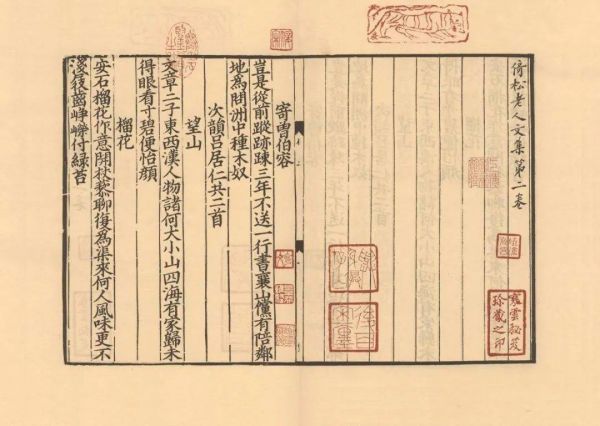 倚松老人文集第二卷
寒雲秘笈
珍藏之印
寄曾伯容
豈是從前蹤跡踈三年不送一行書襄山儻有陪鄰
地為問洲中種木奴
次韻呂居仁共二首
望山
文章二子東西漢人物諸何大小山四海有家歸未
得眼看寸碧便怡顔
榴花
安石榴花你意開杖藜聊復為渠來何人風味更不
齒崢嶸付緑苔